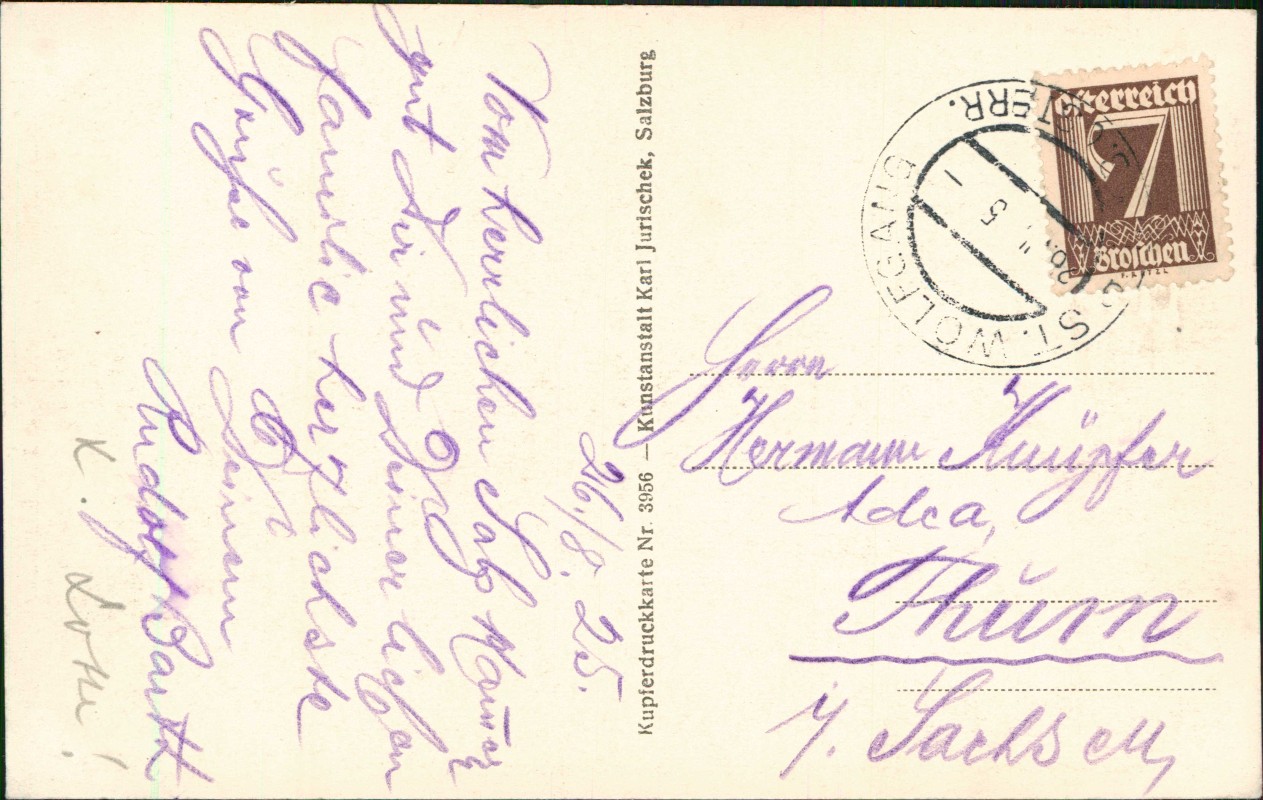 26./8. 25.
Vom herrlichen Salzkammer
gut Dir und Deiner lieben
Familie herzlichste
Grüße von
Deinem
Rudolph Barth
K. Lotte!
Kupferdruckkarte Nr. 3956 — Kunstanstalt Karl Jurischek, Salzburg
Österreich
7
Groschen
ST. WOLFGANG
ÖSTERR.
Herrn
Hermann Knüpfer
Adca,
Thurn
i/. Sachsen,